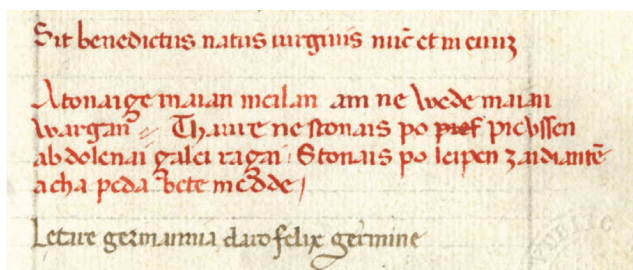 Sit benedictus natus uirginis nūc et in euuȝ
Atonaige maian meilan am ne wede maian
wargan̄ // Thaure ne stonais po pref pievssen
ab dolenai galei ragai / Stonais po leipen zaidiantē
acha peda bete medde /
Letare germannia claro felix germine
PUBLIC